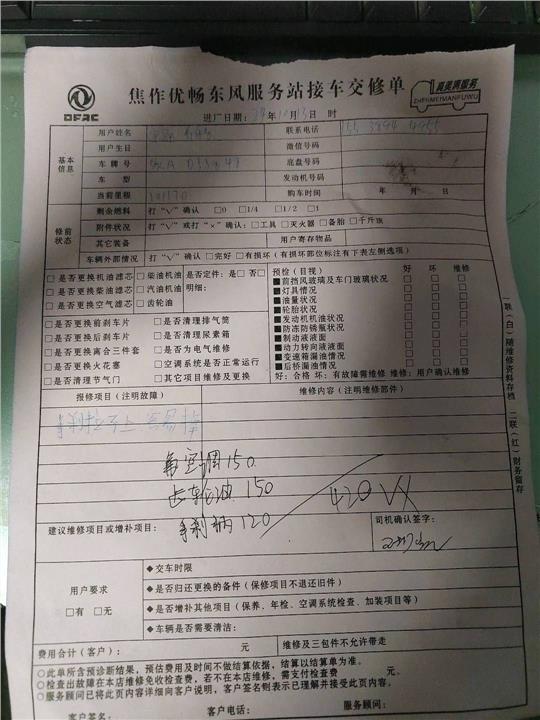 DFAC
焦作优畅东风服务站接车交修单
真美满服务
ZHENMEIMANFUWU
进厂日期: 年10月13日 时
基本信息
用户姓名
联系电话
用户生日
微信号码
车牌号
底盘号码
车型
发动机号码
当前里程 101170
购车时间 年 月 日
修前状态
剩余燃料 打“√”确认 □0 □1/4 □1/2 □1
附件状况 打“√”或打“×”确认:□工具 □灭火器 □备胎 □千斤顶
其它装备
用户寄存物品
车辆外部情况 打“√”确认 □完好 □有损坏(有损坏部位标注有下表左侧选项)
□是否更换机油滤芯 □柴油机油 是否定件:是 □否□
□是否更换柴油滤芯 □汽油机油 明细:
□是否更换空气滤芯 □齿轮油
□是否更换前刹车片 □是否清理排气筒
□是否更换后刹车片 □是否清理尿素箱
□是否更换离合三件套 □是否为电气维修
□是否更换火花塞 □空调系统是否正常运行
□是否清理节气门 □其它项目维修及更换
预检(目视) 好 坏 维修
■前挡风玻璃及车门玻璃状况 □ □ □
■灯具情况 □ □ □
■油量状况 □ □ □
■轮胎状况 □ □ □
■发动机机油状况 □ □ □
■防冻防锈瓶状况 □ □ □
■制动液液面 □ □ □
■动力转向液液面 □ □ □
■变速箱漏油情况 □ □ □
■后桥漏油情况 □ □ □
好:合格 坏:有故障需维修 维修:用户确认维修
报修项目(注明故障)
维修内容(注明维修部件)
手刹拉不上
空调150
齿轮油 150
手刹柄 120
420 VX
建议维修项目或增补项目:
司机确认签字:
用户要求
□有 □无
◆交车时限
◆是否归还更换的备件(保修项目不退还旧件)
◆是否增补其他项目(保养、年检、空调系统检查、加装项目等)
◆车辆是否需要清洁:
费用合计(客户): 元
维修及三包件不允许带走
○此单所含预诊断结果,预估费用及时间不做结算依据,结算以结算单为准。
○检查出故障在本店维修免收检查费,若不在本店维修,需支付检查费 元。
○服务顾问已将此页内容详细向客户说明,客户签名则表示已理解并接受此页内容。
客户签名:
客户电话:
服务顾问:
一联(白)随维修资料存档 二联(红)财务留存